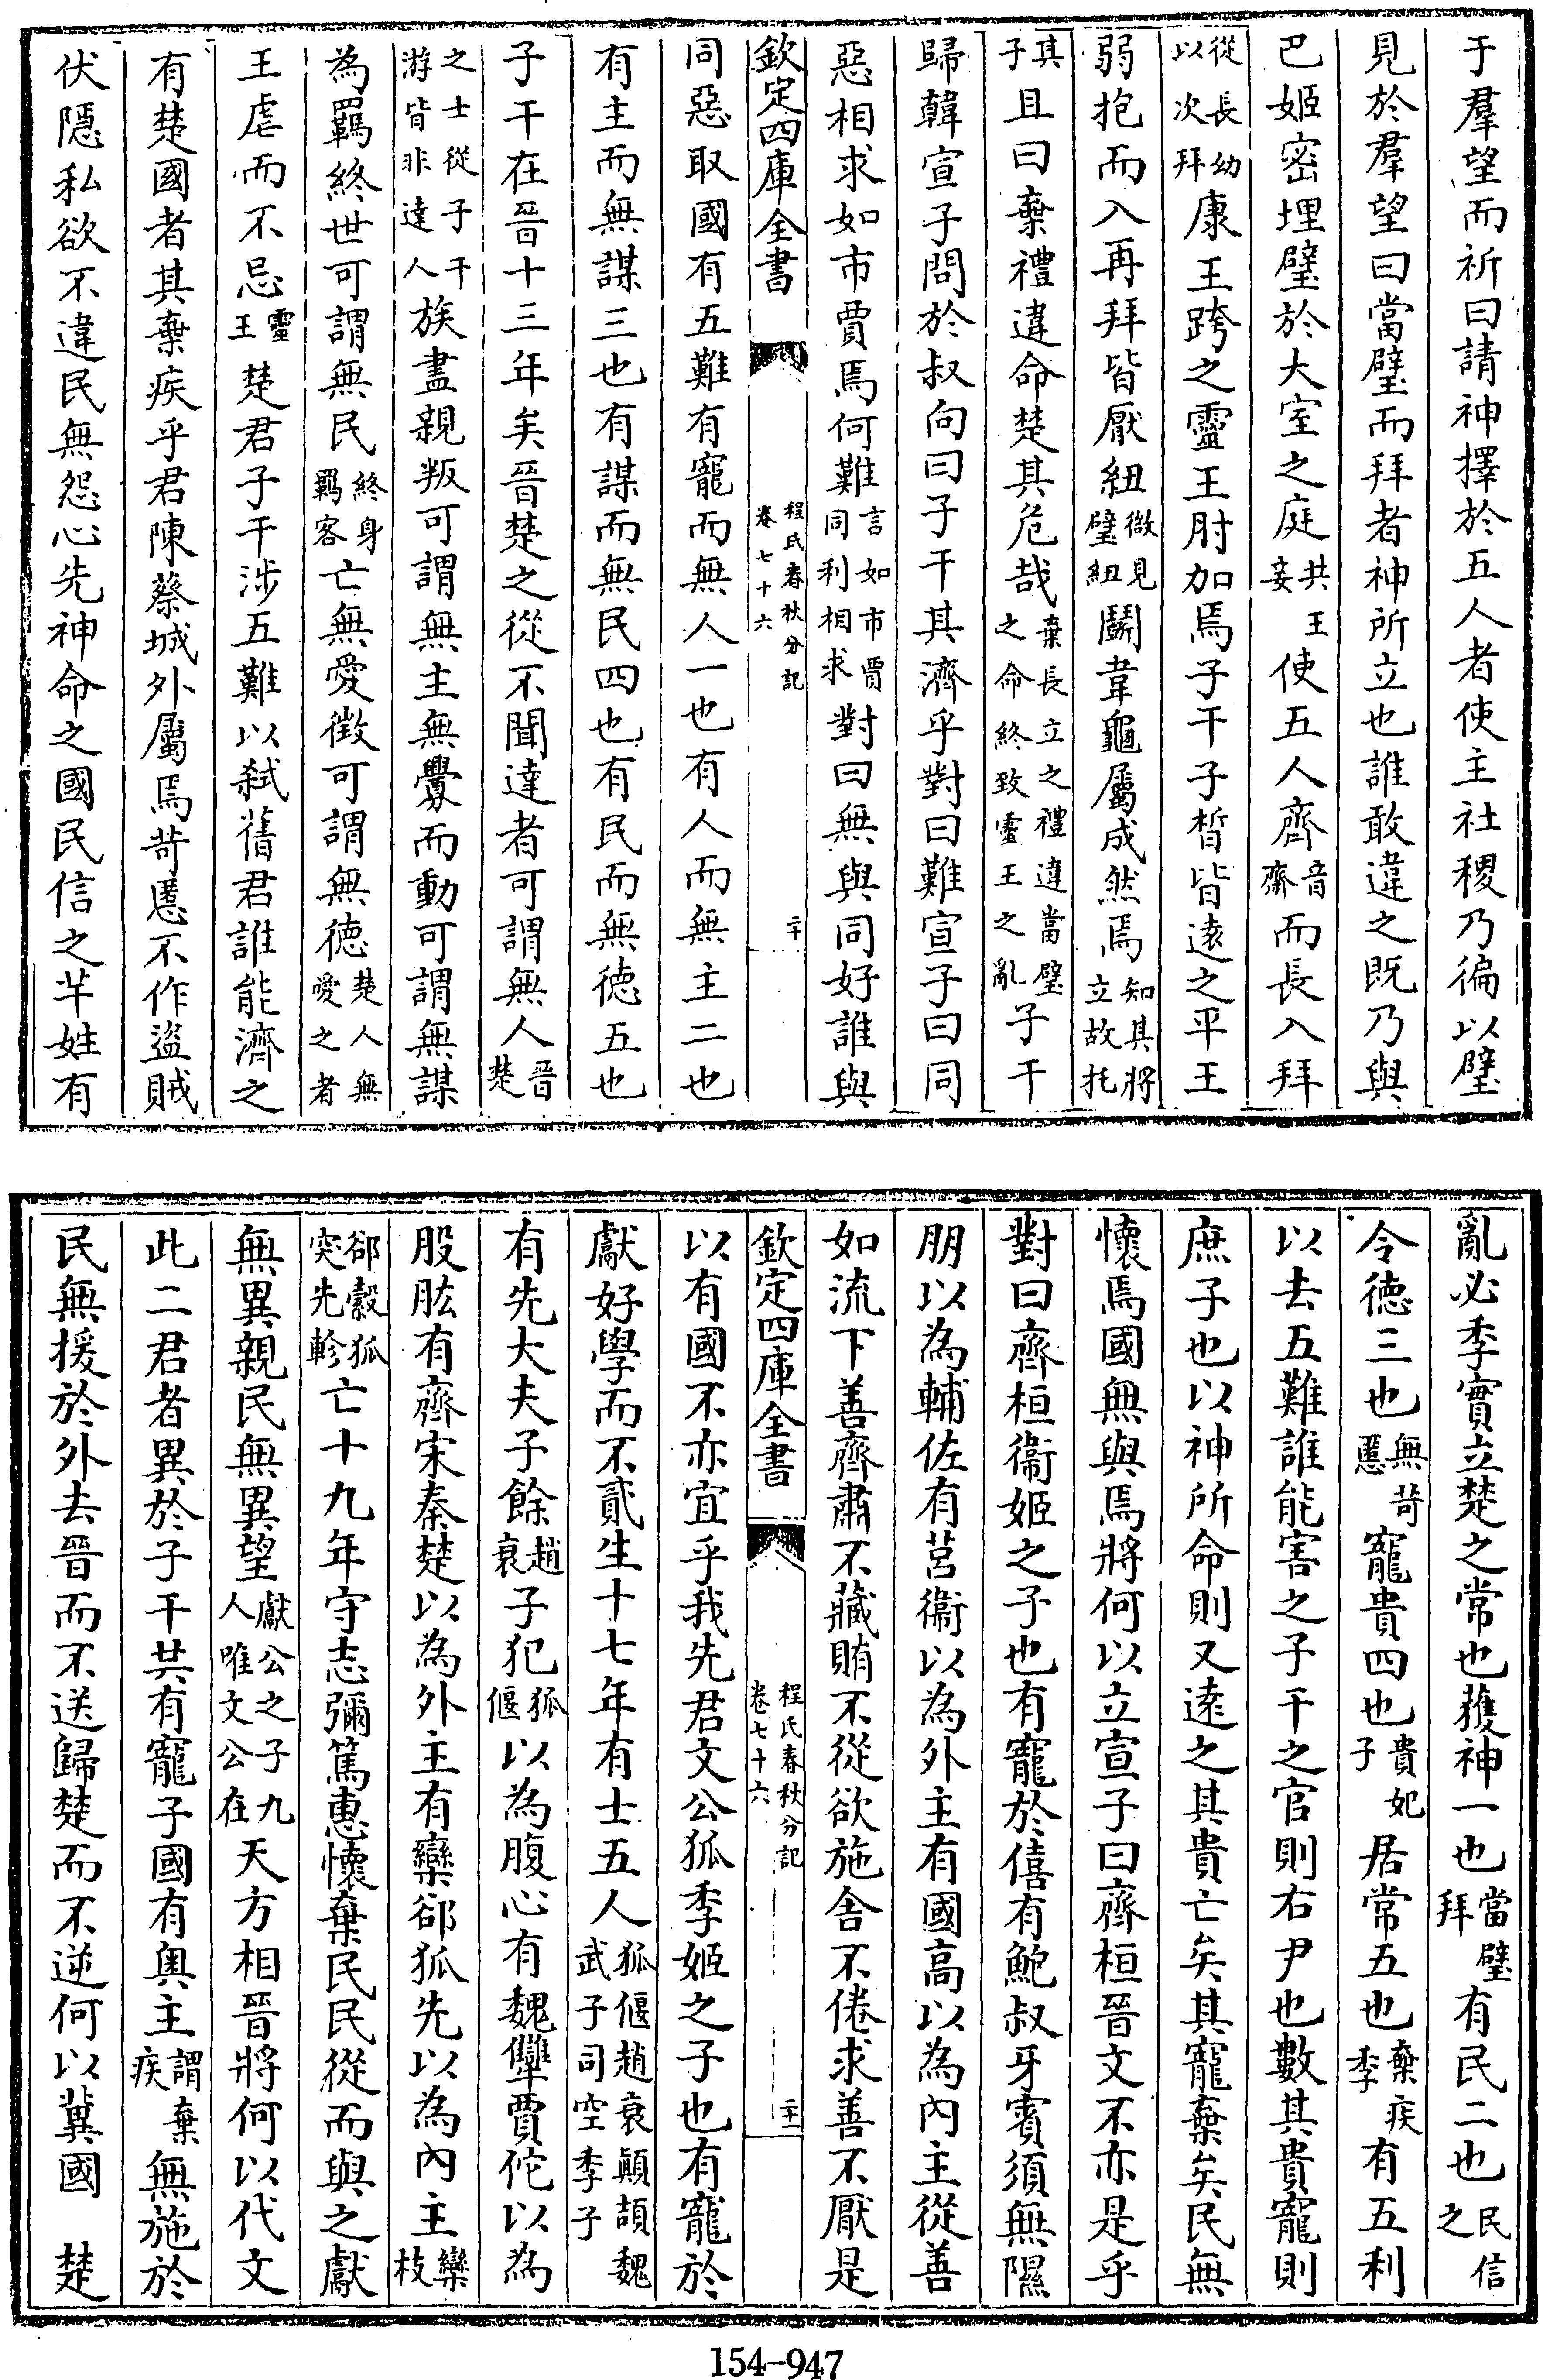 于羣望而祈曰請神擇於五人者使主社稷乃徧以璧
見於羣望曰當璧而拜者神所立也誰敢違之既乃與
巴姬密埋璧於大室之庭共王妾使五人齊音齋而長入拜
從長幼以次拜康王跨之靈王肘加焉子干子晳皆遠之平王
弱抱而入再拜皆厭紐微見璧紐鬭韋龜屬成然焉知其將立故托
其子且曰棄禮違命楚其危哉棄長立之禮違當璧之命終致靈王之亂子干
歸韓宣子問於叔向曰子干其濟乎對曰難宣子曰同
惡相求如市賈焉何難言如市賈同利相求對曰無與同好誰與
欽定四庫全書 程氏春秋分記卷七十六 二十
同惡取國有五難有寵而無人一也有人而無主二也
有主而無謀三也有謀而無民四也有民而無德五也
子干在晉十三年矣晉楚之從不聞達者可謂無人晉楚
之士從子干游皆非達人族盡親叛可謂無主無釁而動可謂無謀
為羈終世可謂無民終身羈客亡無愛徵可謂無德楚人無愛之者
王虐而不忌靈王楚君子干涉五難以弒舊君誰能濟之
有楚國者其棄疾乎君陳蔡城外屬焉苛慝不作盜賊
伏隱私欲不違民無怨心先神命之國民信之芊姓有
亂必季實立楚之常也獲神一也當璧拜有民二也民信之
令德三也無苛慝寵貴四也貴妃子居常五也棄疾季有五利
以去五難誰能害之子干之官則右尹也數其貴寵則
庶子也以神所命則又遠之其貴亡矣其寵棄矣民無
懷焉國無與焉將何以立宣子曰齊桓晉文不亦是乎
對曰齊桓衞姬之子也有寵於僖有鮑叔牙賓須無隰
朋以為輔佐有莒衞以為外主有國高以為內主從善
如流下善齊肅不藏賄不從欲施舍不倦求善不厭是
欽定四庫全書 程氏春秋分記卷七十六 二十一
以有國不亦宜乎我先君文公狐季姬之子也有寵於
獻好學而不貳生十七年有士五人狐偃趙衰顛頡魏武子司空季子
有先大夫子餘趙衰子犯狐偃以為腹心有魏犫賈佗以為
股肱有齊宋秦楚以為外主有欒郤狐先以為內主欒枝
郤縠狐突先軫亡十九年守志彌篤惠懷棄民民從而與之獻
無異親民無異望獻公之子九人唯文公在天方相晉將何以代文
此二君者異於子干共有寵子國有奧主謂棄疾無施於
民無援於外去晉而不送歸楚而不逆何以冀國 楚
154-947